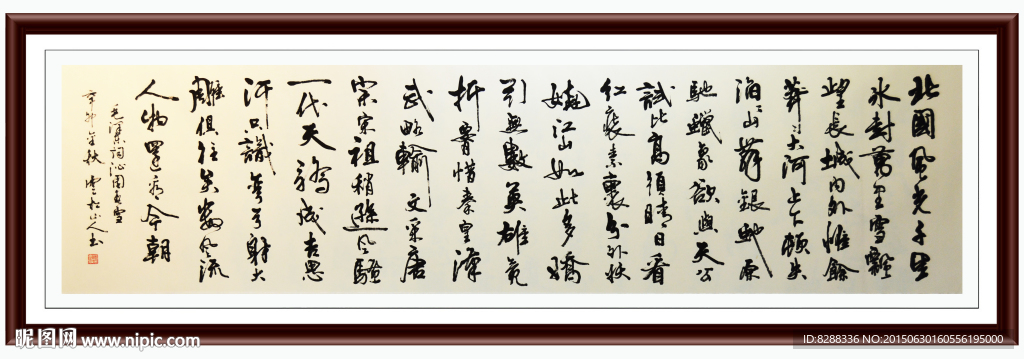 北國風光千里
冰封萬里雪飄
望長城內外惟餘
莽々大河上下頓失
滔々山舞銀蛇原
馳蠟象欲與天公
試比高須晴日看
紅裝素裹分外妖
嬈江山如此多嬌
引無數英雄競
折腰惜秦皇漢
武略輸文采唐
宗宋祖稍遜風騷
一代天驕成吉思
汗只識彎弓射大
雕俱往矣數風流
人物還看今朝
毛澤東詞沁園春雪
辛卯年秋雲松山人書
昵图网 www.nipic.com
ID:8288336 NO:20150630160556195000